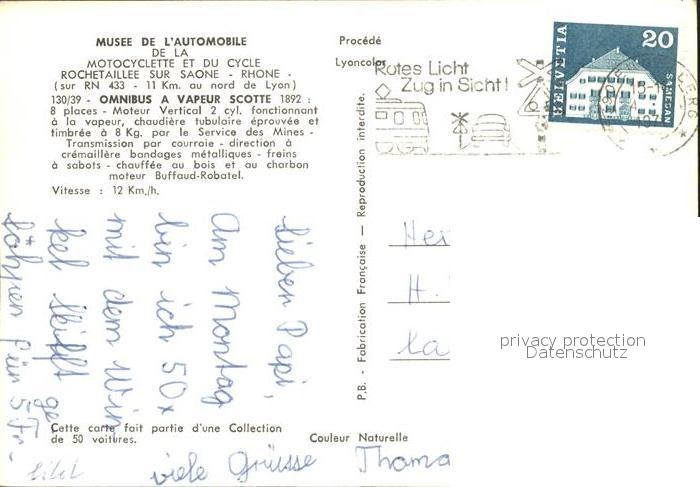 MUSEE DE L'AUTOMOBILE
DE LA
MOTOCYCLETTE ET DU CYCLE
ROCHETAILLEE SUR SAONE - RHONE -
(sur RN 433 - 11 Km. au nord de Lyon)
130/39 - OMNIBUS A VAPEUR SCOTTE 1892 :
8 places - Moteur Vertical 2 cyl. fonctionnant
à la vapeur, chaudière tubulaire éprouvée et
timbrée à 8 Kg. par le Service des Mines -
Transmission par courroie - direction à
crémaillère bandages métalliques - freins
à sabots - chauffée au bois et au charbon
moteur Buffaud-Robatel.
Vitesse : 12 Km./h.
Lieben Papi,
am Montag
bin ich 50x
mit dem Win
kel
ge
für 5 Fr.-
viele Grüsse Thoma
Cette carte fait partie d'une Collection
de 50 voitures.
Couleur Naturelle
Procédé
Lyoncolor
P.B. - Fabrication Française — Reproduction interdite.
Rotes Licht
Zug in Sicht!
HELVETIA
20
SAMEDAN
H.
privacy protection
Datenschutz